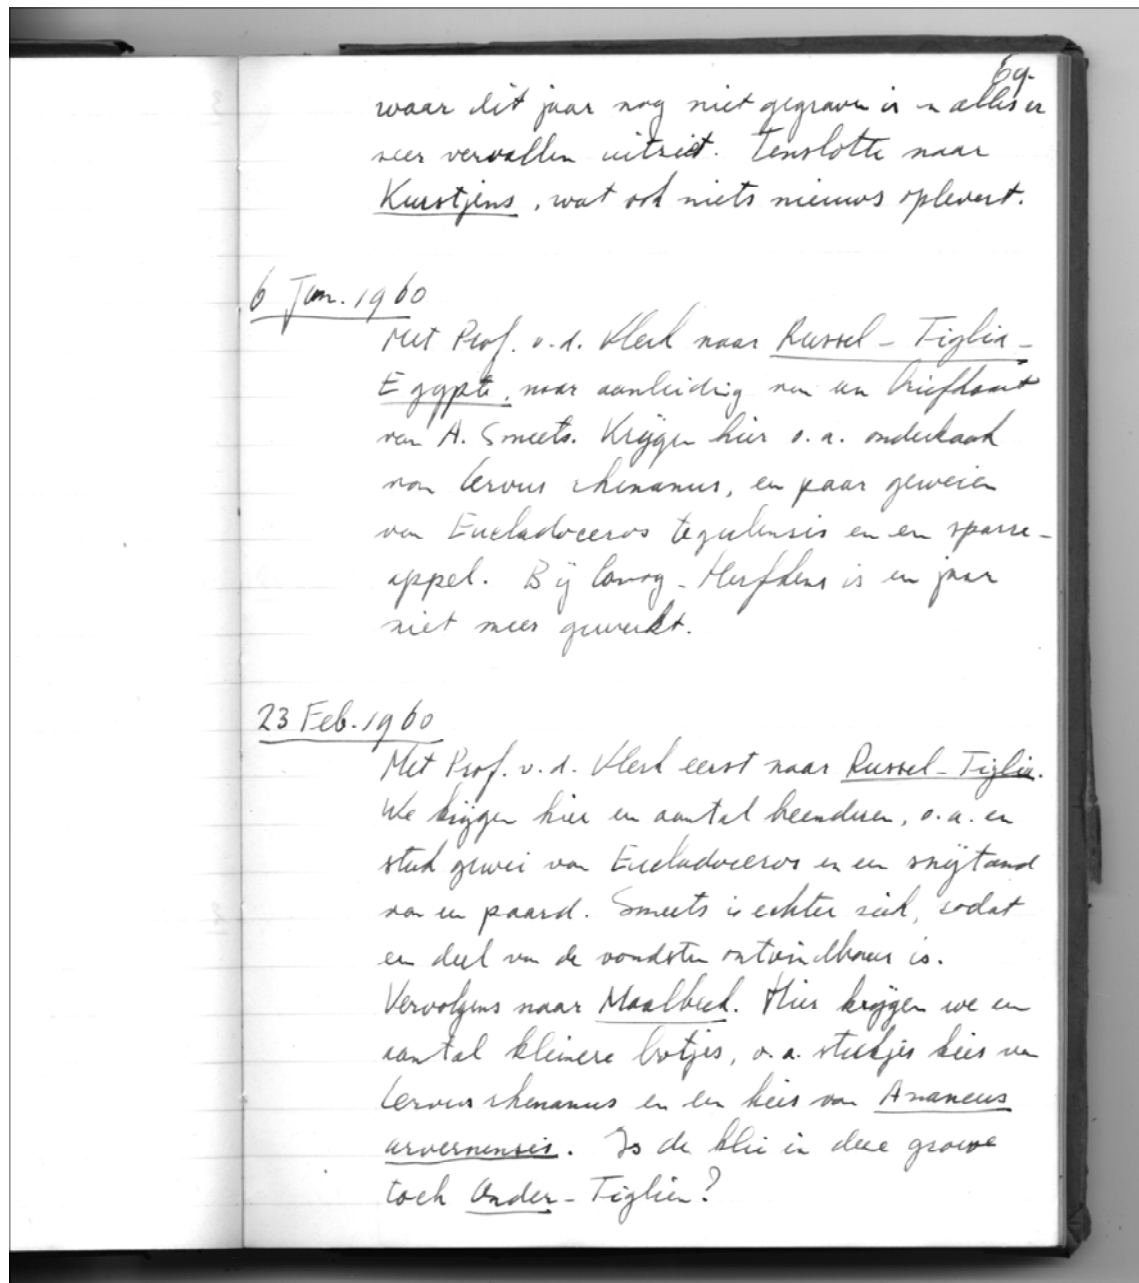 69.
waar dit jaar nog niet gegraven is en alles er
zeer vervallen uitziet. Tenslotte naar
Kurstjens, wat ook niets nieuws oplevert.
6 Jan. 1960
Met Prof. v.d. Vlerk naar Russel - Tiglia -
Egypte, naar aanleiding van een briefkaart
van A. Smeets. Krijgen hier o.a. onderkaak
van Cervus rhenanus, en paar geweien
van Eucladoceros tegulensis en en sparre-
appel. Bij Canoy - Herfkens is een jaar
niet meer gewerkt.
23 Feb. 1960
Met Prof. v.d. Vlerk eerst naar Russel - Tiglia.
We krijgen hier en aantal beenderen, o.a. en
stuk gewei van Eucladoceros en een snijtand
van een paard. Smeets is echter ziek, zodat
en deel van de vondsten onvindbaar is.
Vervolgens naar Maalbeek. Hier krijgen we een
aantal kleinere botjes, o.a. stukjes kies van
Cervus rhenanus en een kies van Anancus
arvernensis. Is de klei in deze groeve
toch Onder - Tiglien?